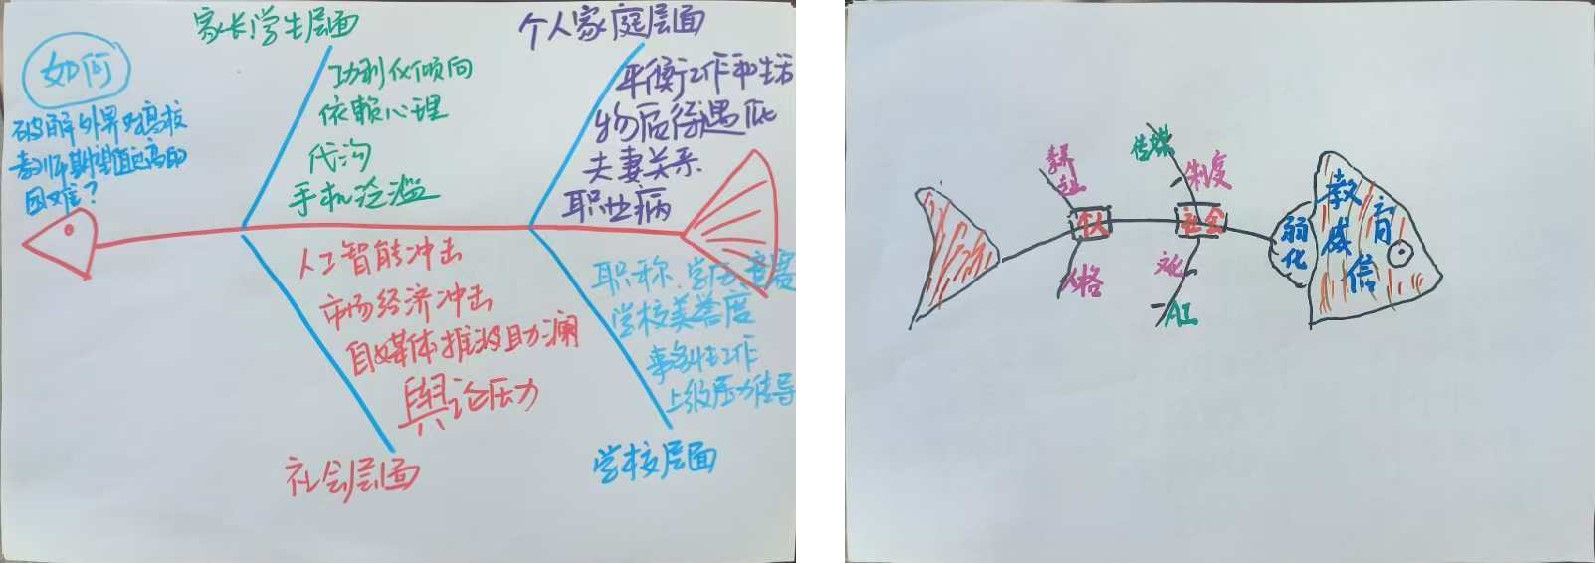 如何
破解外界对高校
教师期望值过高的
困难？
家长学生层面
功利化倾向
依赖心理
代沟
手机泛滥
个人家庭层面
平衡工作和生活
物质待遇低
夫妻关系
职业病
人工智能冲击
市场经济冲击
自媒体推波助澜
舆论压力
社会层面
学校美誉度
事务性工作
上级压力传导
学校层面
传媒
制度
个人
社会
人格
文化
AI
弱化
教育
威信